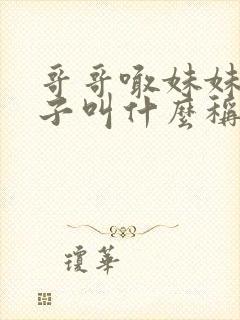 哥哥啾妹妹
子叫什麼稱
瓊華